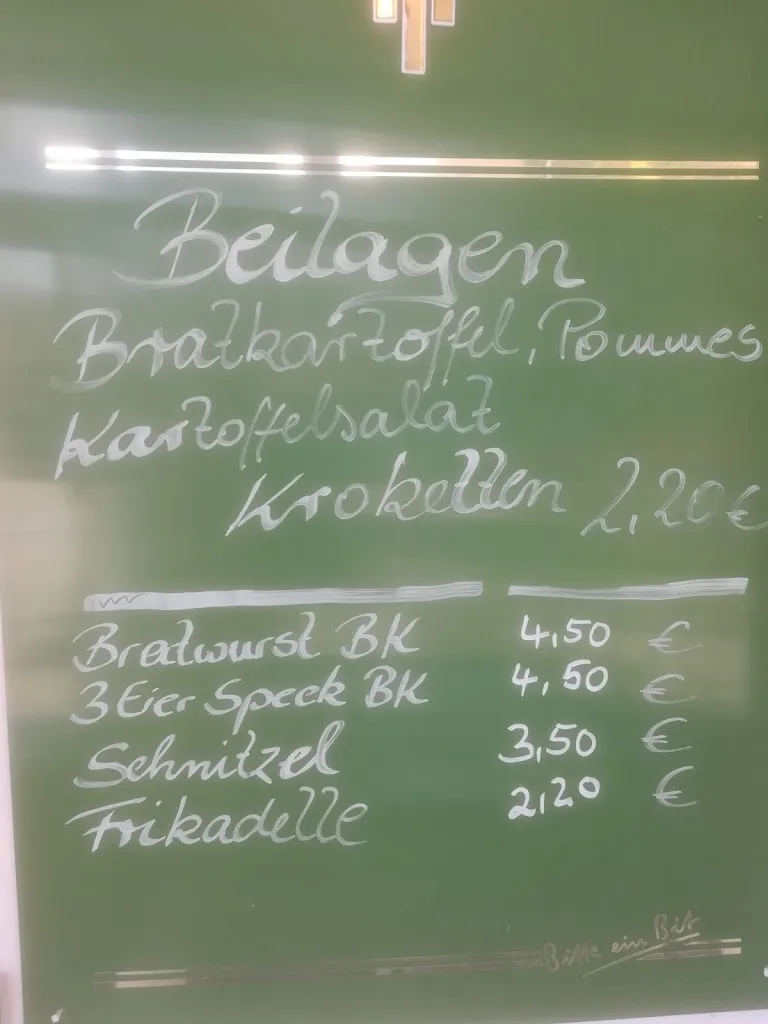 Beilagen
Bratkartoffel, Pommes
Kartoffelsalat
Kroketten 2,20€
Bratwurst BK 4,50 €
3 Eier Speck BK 4,50 €
Schnitzel 3,50 €
Frikadelle 2,20 €
Bitte ein Bit